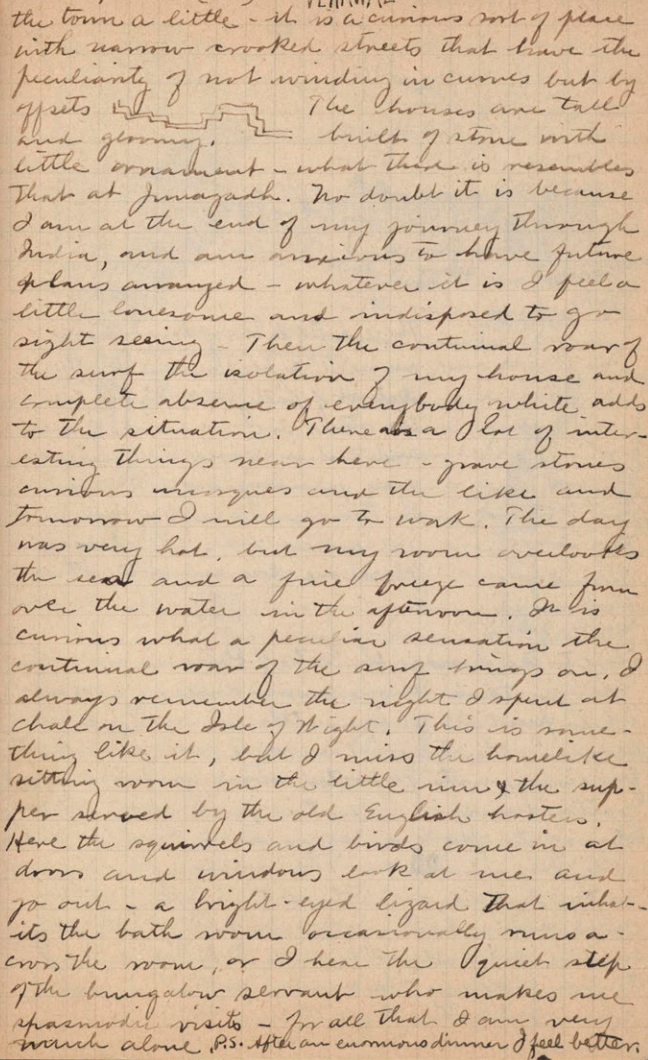 the town a little - it is a curious sort of place
with narrow crooked streets that have the
peculiarity of not winding in curves but by
offsets The houses are tall
and gloomy. built of stone with
little ornament - what there is resembles
that at Junagadh. No doubt it is because
I am at the end of my journey through
India, and am anxious to have future
plans arranged - whatever it is I feel a
little lonesome and indisposed to go
sight seeing - Then the continual roar of
the surf the isolation of my house and
complete absence of everybody white, adds
to the situation. There are a lot of inter-
esting things near here - grave stones
curious mosques and the like and
tomorrow I will go to work. The day
was very hot, but my room overlooks
the sea and a fine breeze came from
over the water in the afternoon. It is
curious what a peculiar sensation the
continual roar of the surf brings on. I
always remember the night I spent at
Chale on the Isle of Wight. This is some-
thing like it, but I miss the homelike
sitting room in the little inn & the sup-
per served by the old English hostess.
Here the squirrels and birds come in at
doors and windows look at me and
go out - a bright-eyed lizard that inhab-
its the bath room occasionally runs a-
cross the room, or I hear the quiet step
of the bungalow servant who makes me
spasmodic visits - for all that I am very
much alone. P.S. After an enormous dinner I feel better.